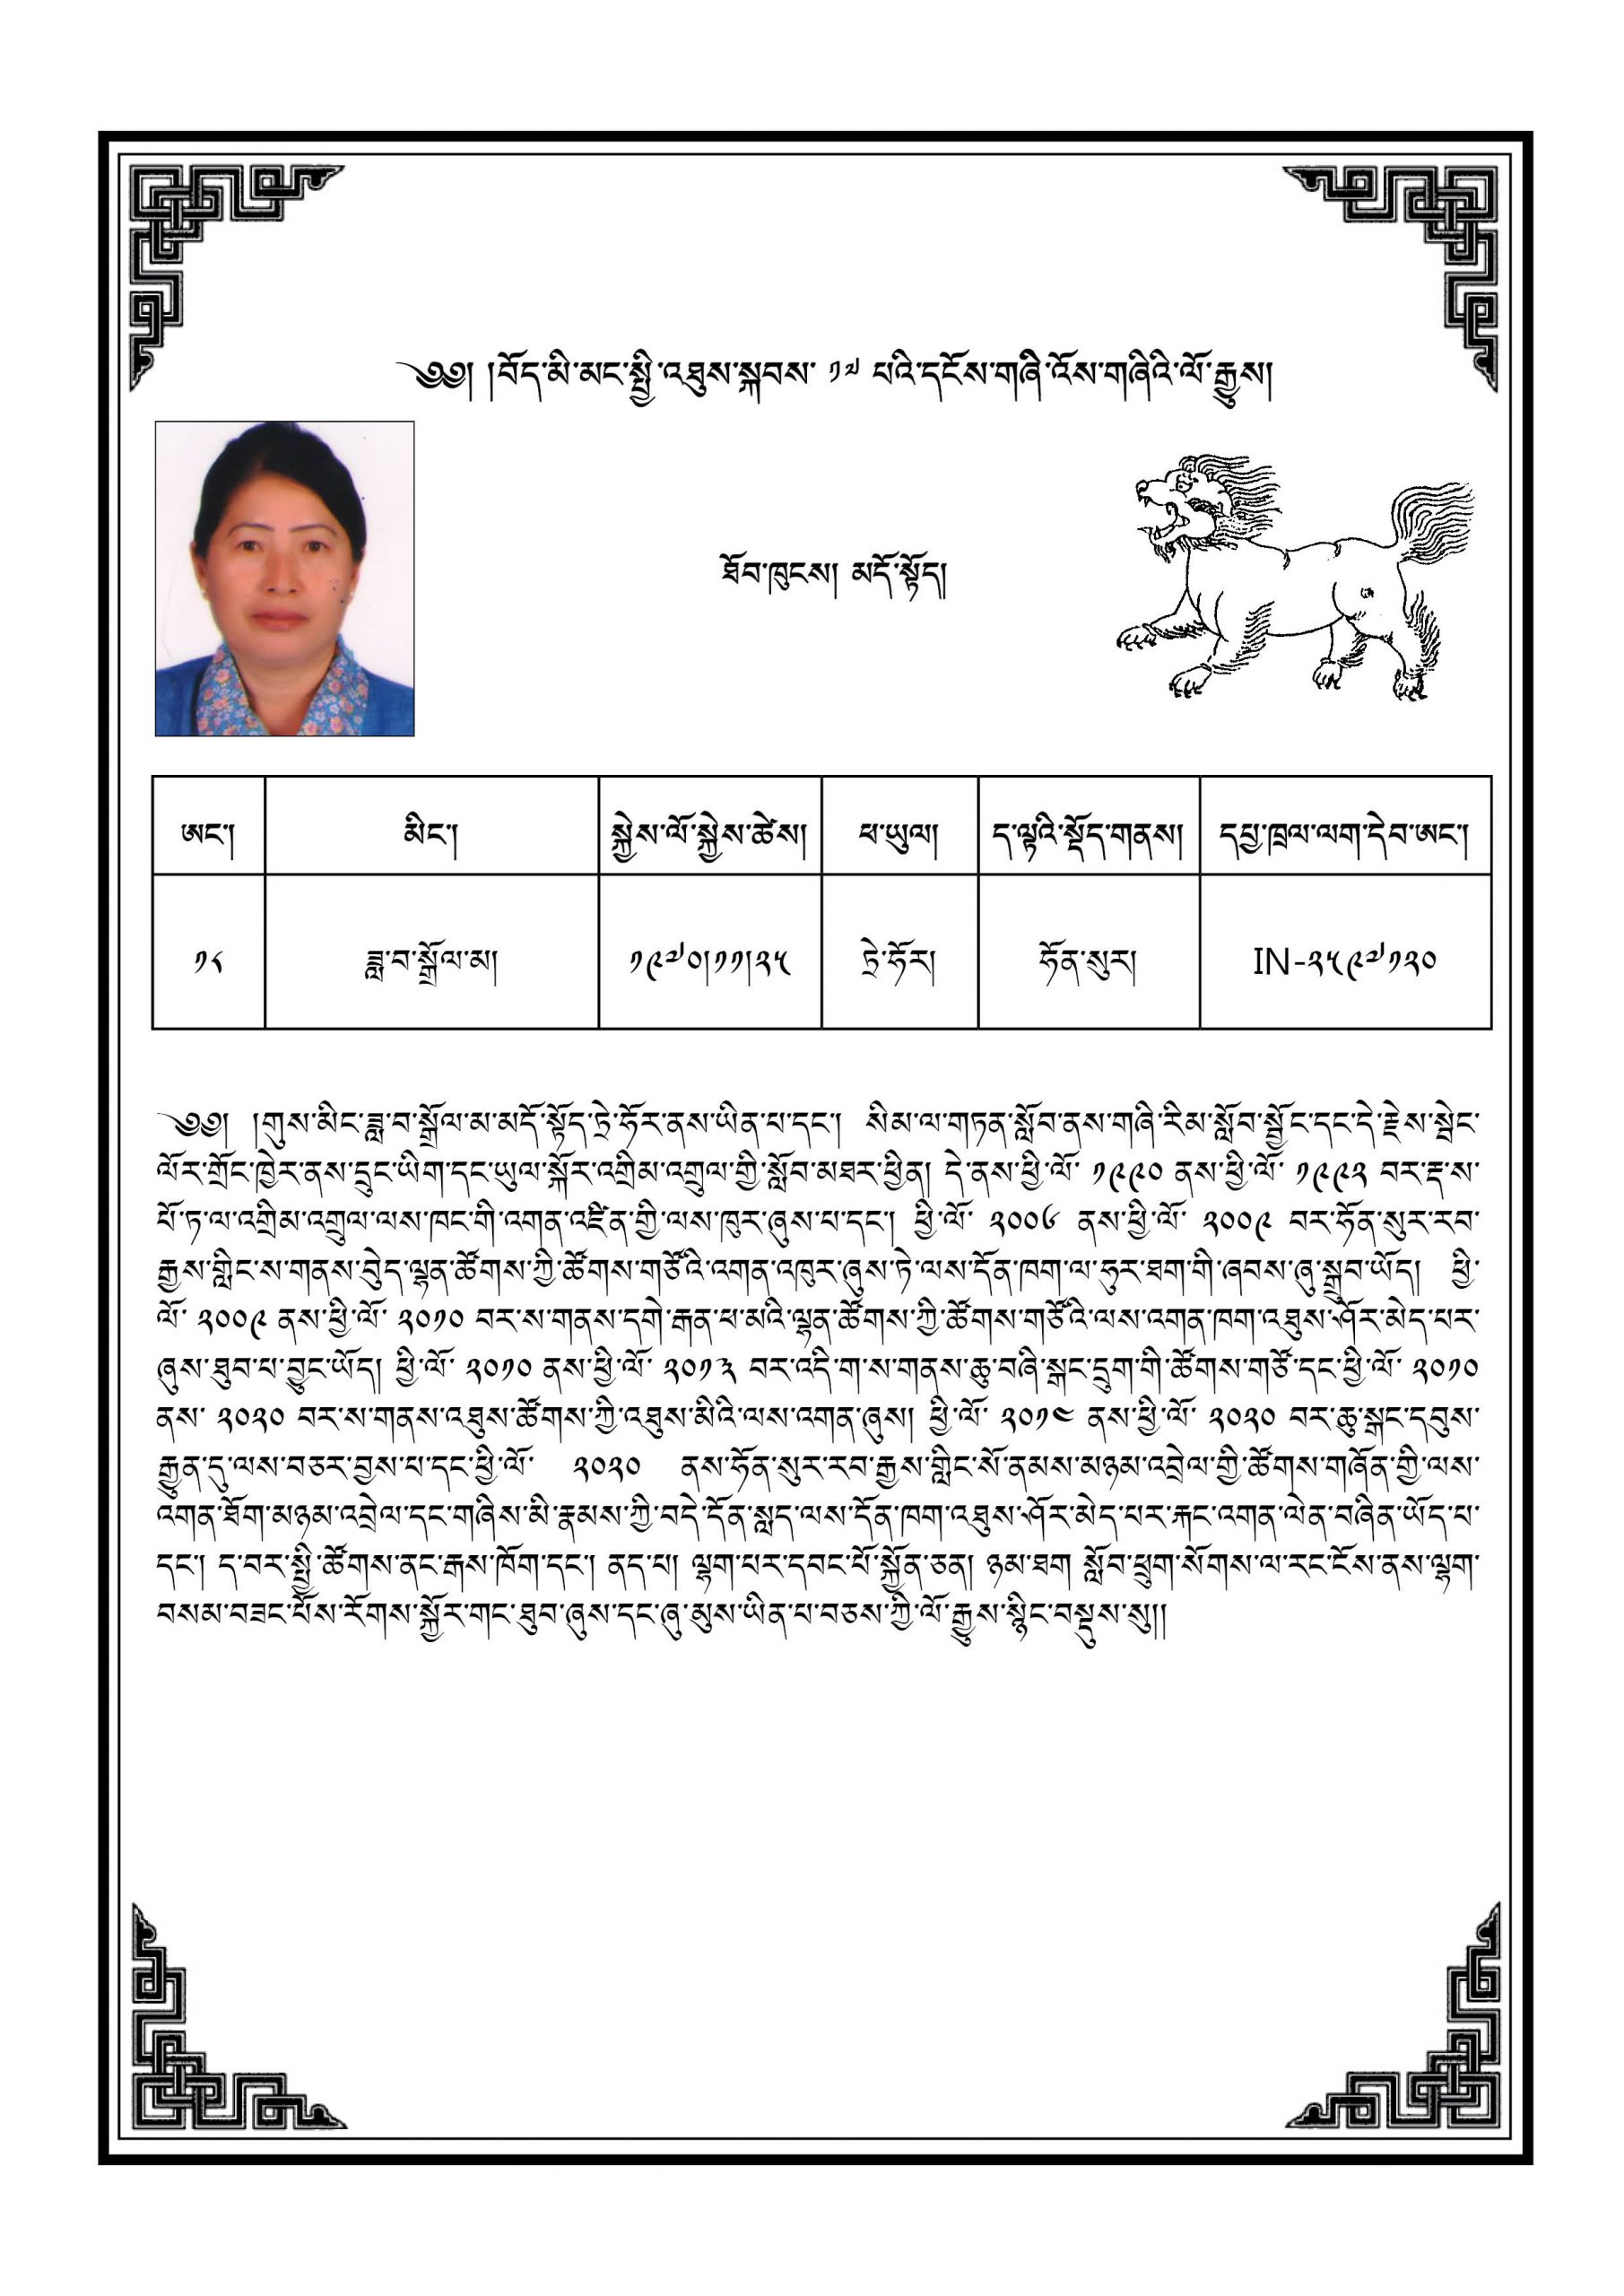 ༄༅། །བོད་མི་མང་སྤྱི་འཐུས་སྐབས་ ༡༧ པའི་དངོས་གཞི་འོས་གཞིའི་ལོ་རྒྱུས།
ཐོབ་ཁུངས། མདོ་སྟོད།
ཨང་། མིང་། སྐྱེས་ལོ་སྐྱེས་ཚེས། ཕ་ཡུལ། ད་ལྟའི་སྡོད་གནས། དཔྱ་ཁྲལ་ལག་དེབ་ཨང་།
༡༨ ཟླ་བ་སྒྲོལ་མ། ༡༩༧༠།༡༡།༢༥ ཏྲེ་ཧོར། ཧོན་སུར། IN-༢༥༩༧༡༢༠
༄༅། །གུས་མིང་ཟླ་བ་སྒྲོལ་མ་མདོ་སྟོད་ཏྲེ་ཧོར་ནས་ཡིན་པ་དང་། སིམ་ལ་གཏན་སློབ་ནས་གཞི་རིམ་སློབ་སྦྱོང་དང་དེ་རྗེས་སྦེང་
ལོར་གྲོང་ཁྱེར་ནས་དྲུང་ཡིག་དང་ཡུལ་སྐོར་འགྲིམ་འགྲུལ་གྱི་སློབ་མཐར་ཕྱིན། དེ་ནས་ཕྱི་ལོ་ ༡༩༩༠ ནས་ཕྱི་ལོ་ ༡༩༩༢ བར་རྡ་ས་
པོ་ཏ་ལ་འགྲིམ་འགྲུལ་ལས་ཁང་གི་འགན་འཛིན་གྱི་ལས་ཁུར་ཞུས་པ་དང་། ཕྱི་ལོ་ ༢༠༠༦ ནས་ཕྱི་ལོ་ ༢༠༠༩ བར་ཧོན་སུར་རབ་
རྒྱས་གླིང་ས་གནས་བུད་ལྷན་ཚོགས་ཀྱི་ཚོགས་གཙོའི་འགན་འཁུར་ཞུས་ཏེ་ལས་དོན་ཁག་ལ་ཧུར་ཐག་གི་ཞབས་ཞུ་སྒྲུབ་ཡོད། ཕྱི་
ལོ་ ༢༠༠༩ ནས་ཕྱི་ལོ་ ༢༠༡༠ བར་ས་གནས་དགེ་རྒན་ཕ་མའི་ལྷན་ཚོགས་ཀྱི་ཚོགས་གཙོའི་ལས་འགན་ཁག་འཐུས་ཤོར་མེད་པར་
ཞུས་ཐུབ་པ་བྱུང་ཡོད། ཕྱི་ལོ་ ༢༠༡༠ ནས་ཕྱི་ལོ་ ༢༠༡༣ བར་འདི་ག་ས་གནས་ཆུ་བཞི་སྒང་དྲུག་གི་ཚོགས་གཙོ་དང་ཕྱི་ལོ་ ༢༠༡༠
ནས་ ༢༠༢༠ བར་ས་གནས་འཐུས་ཚོགས་ཀྱི་འཐུས་མིའི་ལས་འགན་ཞུས། ཕྱི་ལོ་ ༢༠༡༤ ནས་ཕྱི་ལོ་ ༢༠༢༠ བར་ཆུ་སྒང་དབུས་
རྒྱུན་དུ་ལས་བཅར་བྱས་པ་དང་ཕྱི་ལོ་ ༢༠༢༠ ནས་ཧོན་སུར་རབ་རྒྱས་གླིང་སོ་ནམས་མཉམ་འབྲེལ་གྱི་ཚོགས་གཞོན་གྱི་ལས་
འགན་ཐོག་མཉམ་འབྲེལ་དང་གཞིས་མི་རྣམས་ཀྱི་བདེ་དོན་སླད་ལས་དོན་ཁག་འཐུས་ཤོར་མེད་པར་རྐང་འགན་ལེན་བཞིན་ཡོད་པ་
དང་། ད་བར་སྤྱི་ཚོགས་ནང་རྒས་ཁོག་དང་། ནད་པ། ལྷག་པར་དབང་པོ་སྐྱོན་ཅན། ཉམ་ཐག སློབ་ཕྲུག་སོགས་ལ་རང་ངོས་ནས་ལྷག་
བསམ་བཟང་པོས་རོགས་སྐྱོར་གང་ཐུབ་ཞུས་དང་ཞུ་མུས་ཡིན་པ་བཅས་ཀྱི་ལོ་རྒྱུས་སྙིང་བསྡུས་སུ།།